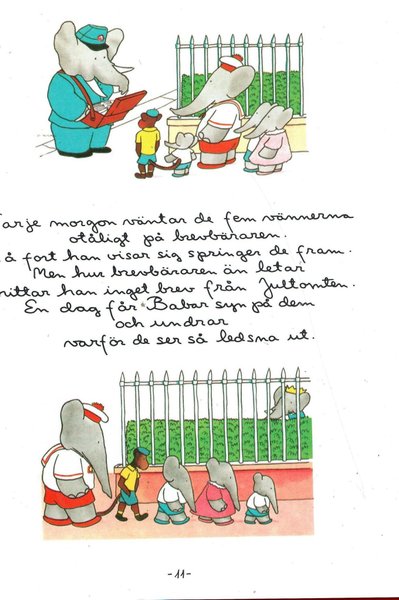 Varje morgon väntar de fem vännerna
otåligt på brevbäraren.
å fort han visar sig springer de fram.
Men hur brevbäraren än letar
hittar han inget brev från Jultomten.
En dag får Babar syn på dem
och undrar
varför de ser så ledsna ut.
-11-